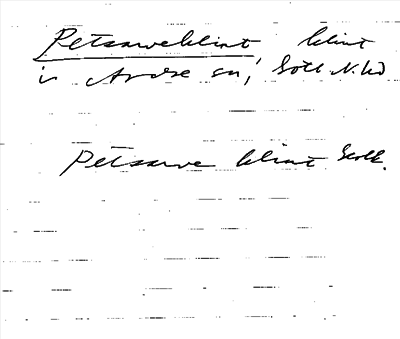 Petsarveklint, klint
i Ardre sn, Gotl.
Petsarve klint Gotl.